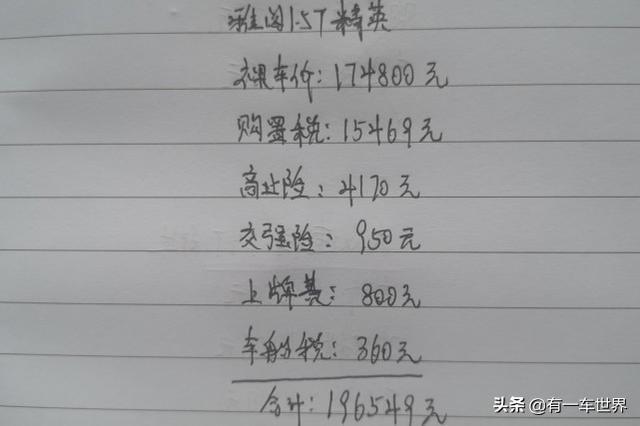 雅阁1.5T精英
裸车价：174800元
购置税：15469元
商业险：4170元
交强险：950元
上牌费：800元
车船税：360元
合计：196549元
头条@有一车世界